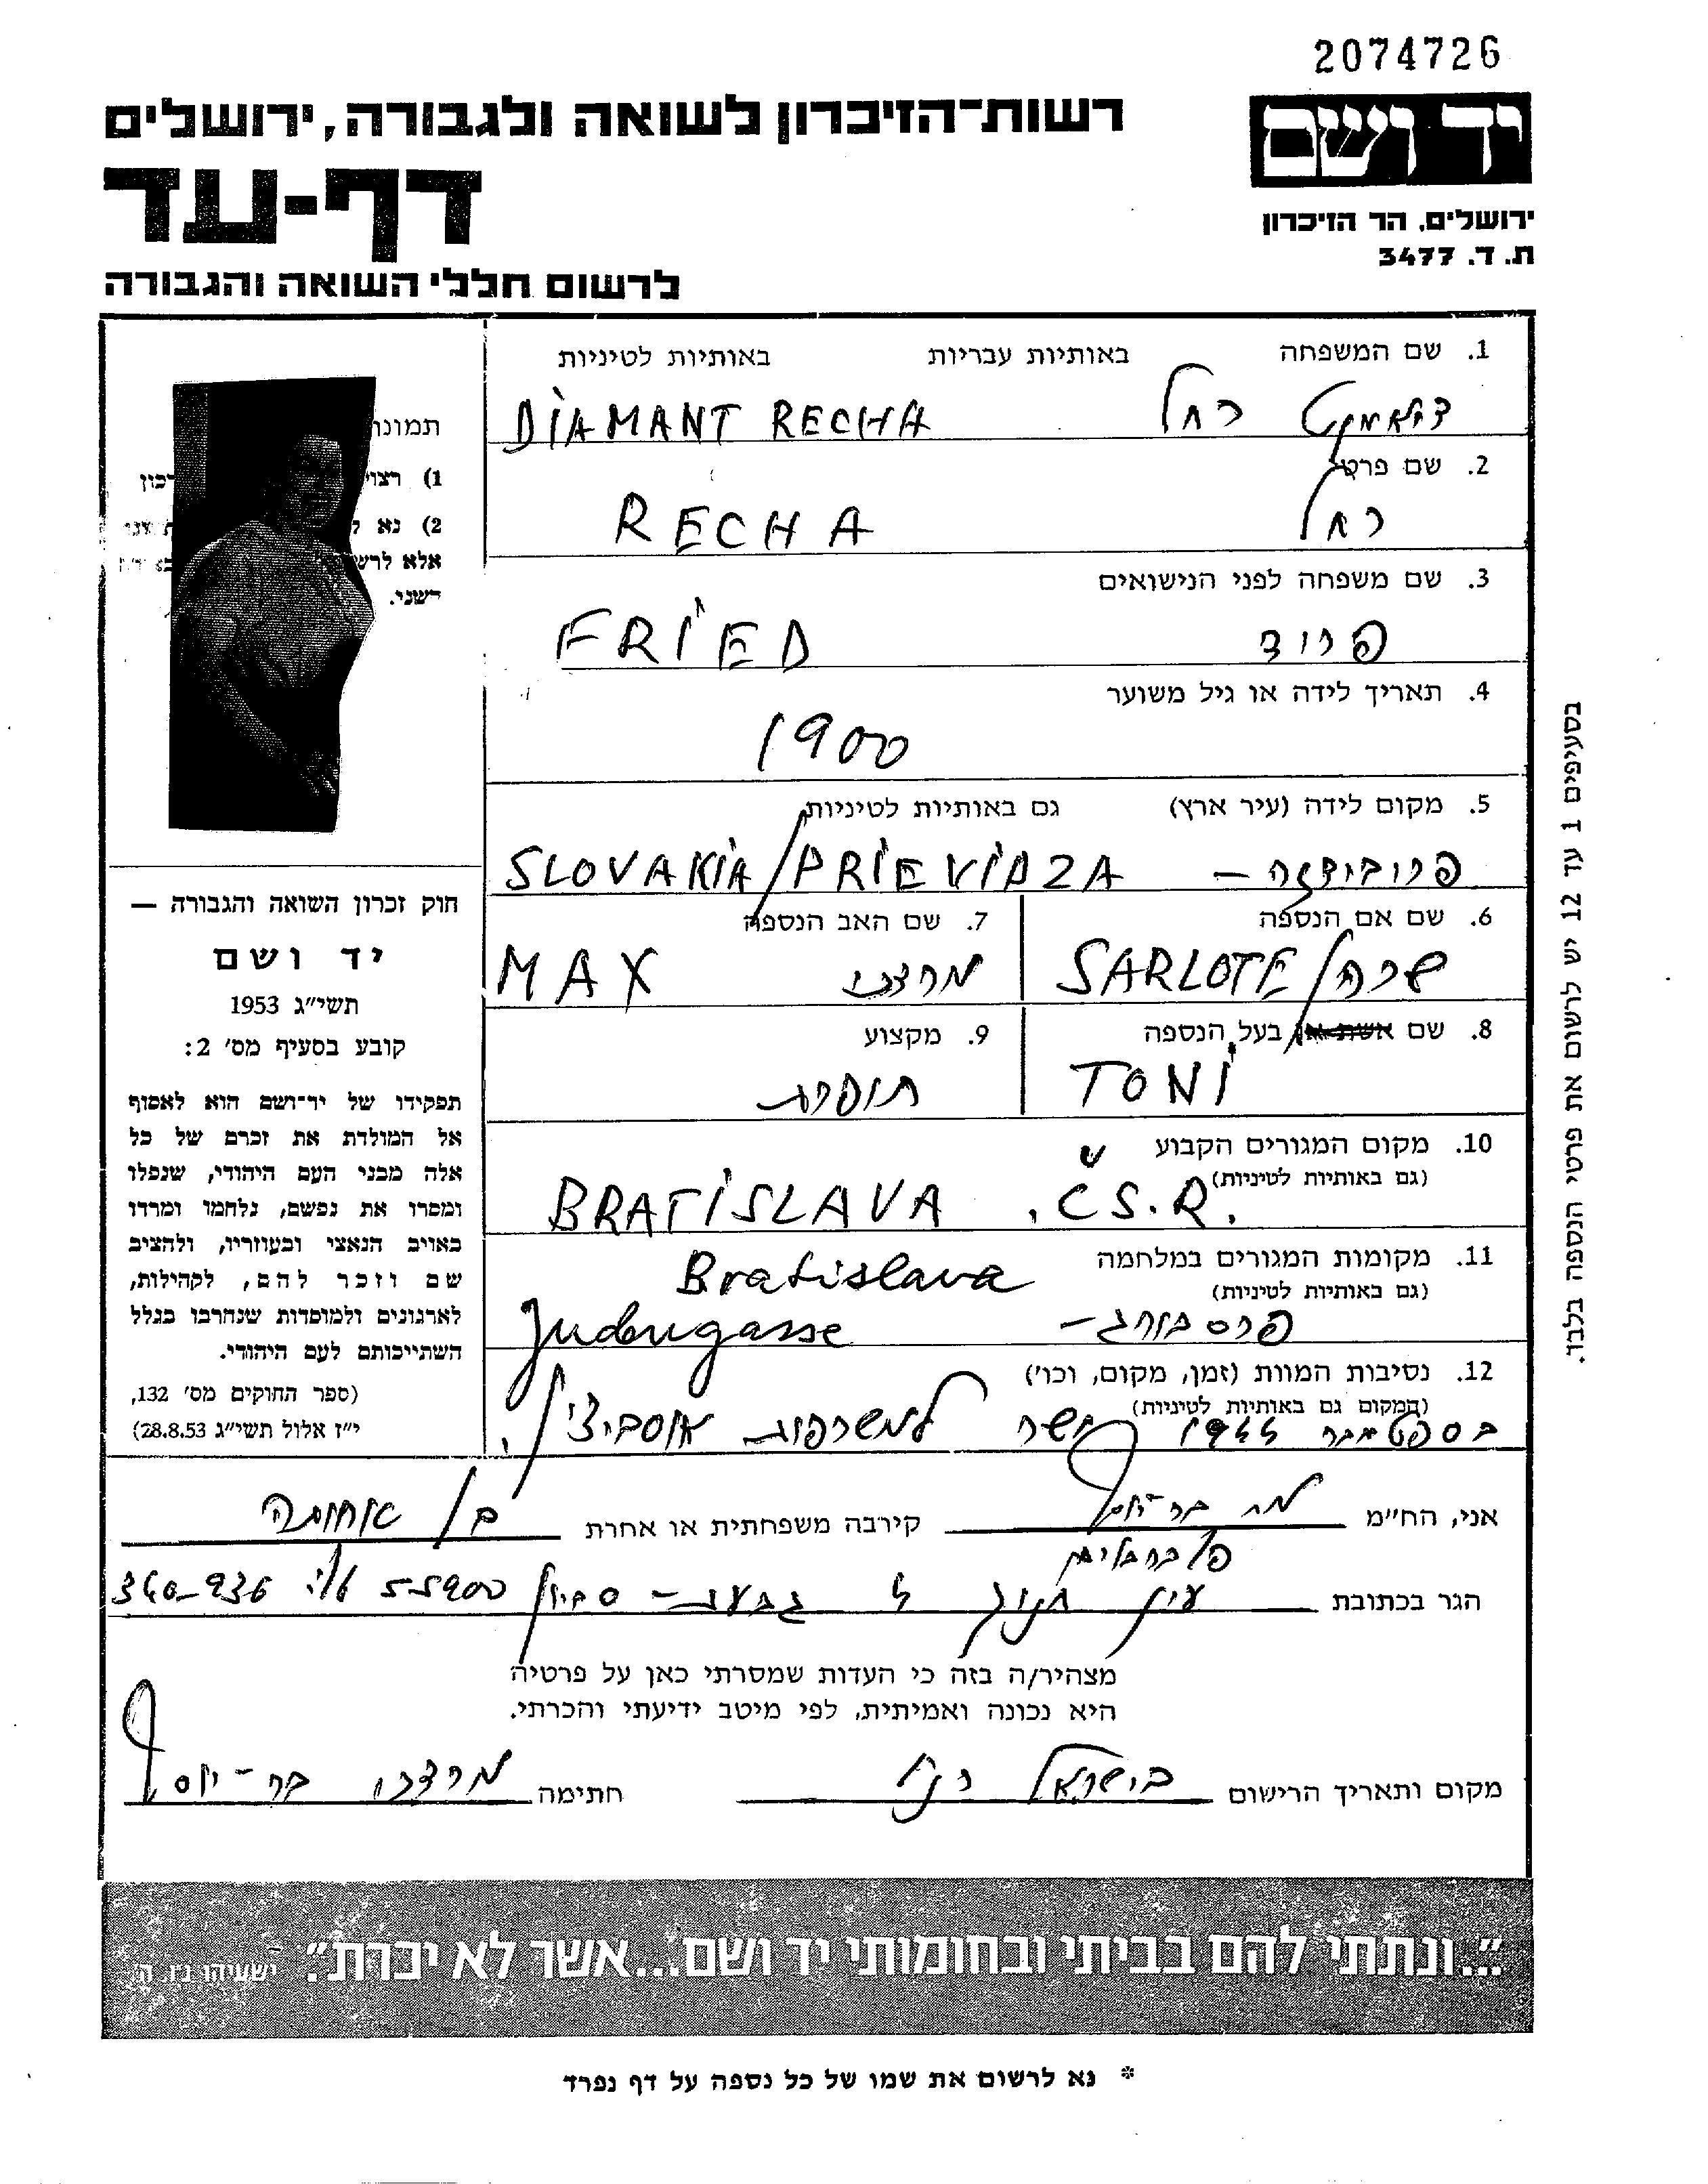 2074726
יד ושם
רשות-הזיכרון לשואה ולגבורה, ירושלים
דף-עד
ירושלים, הר הזיכרון
ת. ד. 3477
לרשום חללי השואה והגבורה
1. שם המשפחה באותיות עבריות באותיות לטיניות
דיאמנט רחל DIAMANT RECHA
2. שם פרטי
רחל RECHA
3. שם משפחה לפני הנישואים
פריד FRIED
4. תאריך לידה או גיל משוער
1900
5. מקום לידה (עיר ארץ) גם באותיות לטיניות
פרובידזה – SLOVAKIA/PRIEVIDZA
6. שם אם הנספה 7. שם האב הנספה
שרה/ SARLOTE מרצו MAX
8. שם אשת או בעל הנספה 9. מקצוע
TONI תופרת
10. מקום המגורים הקבוע
(גם באותיות לטיניות)
BRATISLAVA , ČS.R.
11. מקומות המגורים במלחמה
Bratislava
(גם באותיות לטיניות)
פרסבורג – Judengasse
12. נסיבות המוות (זמן, מקום, וכו')
(המקום גם באותיות לטיניות)
בספטמבר 1944 ישר למשרפות אוסביצין.
תמונה
1) רצוי רכון
2) נא
אלא לרש
השני.
חוק זכרון השואה והגבורה —
יד ושם
תשי"ג 1953
קובע בסעיף מס' 2:
תפקידו של יד-ושם הוא לאסוף
אל המולדת את זכרם של כל
אלה מבני העם היהודי, שנפלו
ומסרו את נפשם, נלחמו ומרדו
באויב הנאצי ובעוזריו, ולהציב
שם וזכר להם, לקהילות,
לארגונים ולמוסדות שנחרבו בגלל
השתייכותם לעם היהודי.
(ספר החוקים מס' 132,
י"ז אלול תשי"ג 28.8.53)
בסעיפים 1 עד 12 יש לרשום את פרטי הנספה בלבד.
אני, הח"מ בר-יוסף קירבה משפחתית או אחרת בן אחותה
הגר בכתובת עין חנוך 2 גבעת – סביון 55900 טל' 340-936
מצהיר/ה בזה כי העדות שמסרתי כאן על פרטיה
היא נכונה ואמיתית, לפי מיטב ידיעתי והכרתי.
מקום ותאריך הרישום בישראל חתימה מרצו בר-יוסף
"...ונתתי להם בביתי ובחומותי יד ושם... אשר לא יכרת". ישעיהו נ"ו. ה.
* נא לרשום את שמו של כל נספה על דף נפרד